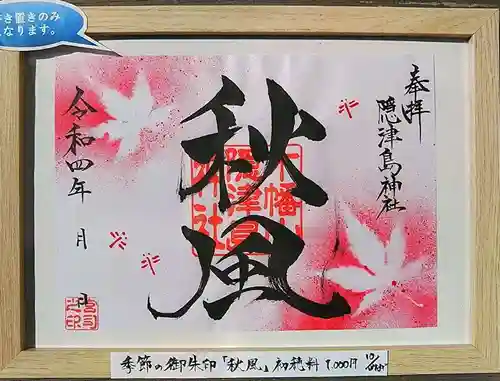 書き置きのみ
となります。
奉拝
隠津島神社
秋風
令和四年 月 日
季節の御朱印「秋風」初穂料 1,000円